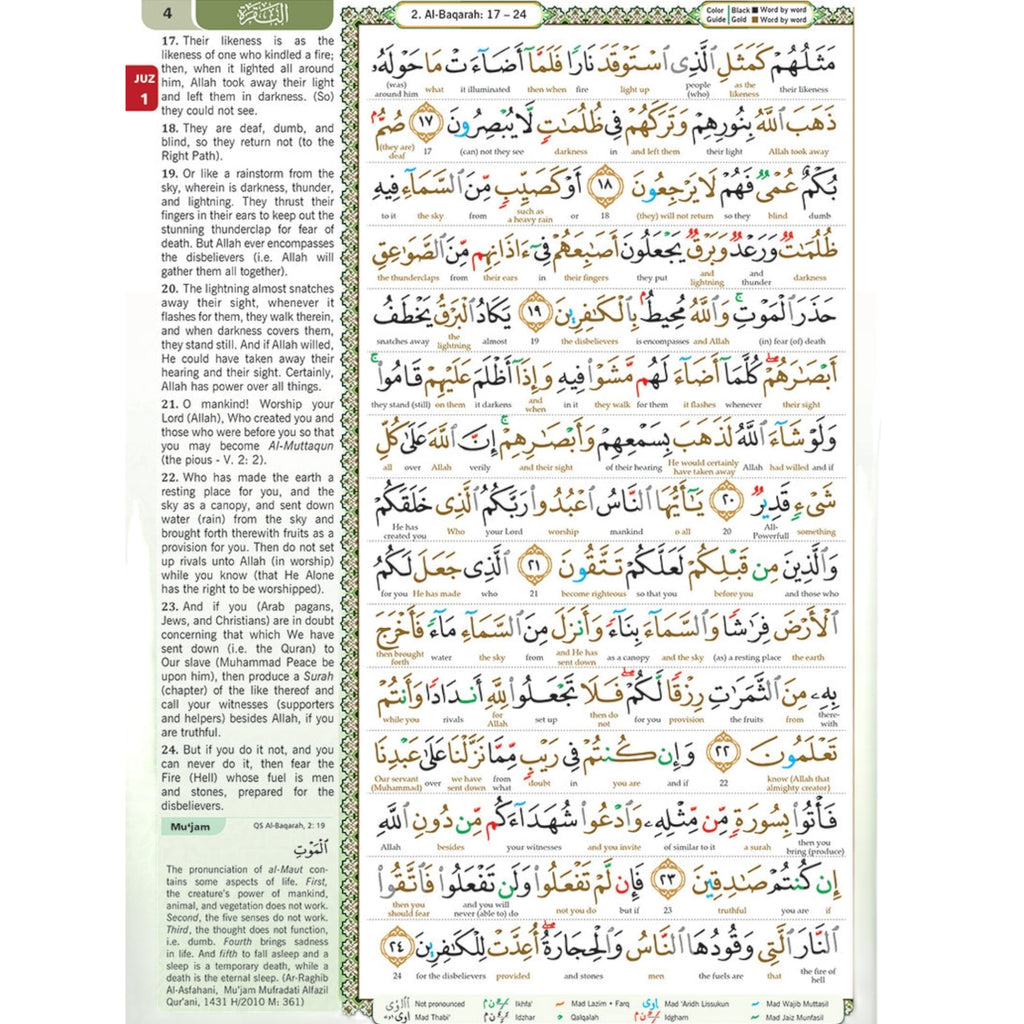 4
البقرة
2. Al-Baqarah: 17 – 24
Color Guide | Black ■ Word by word
Gold ■ Word by word
JUZ
1
17. Their likeness is as the
likeness of one who kindled a fire;
then, when it lighted all around
him, Allah took away their light
and left them in darkness. (So)
they could not see.
18. They are deaf, dumb, and
blind, so they return not (to the
Right Path).
19. Or like a rainstorm from the
sky, wherein is darkness, thunder,
and lightning. They thrust their
fingers in their ears to keep out the
stunning thunderclap for fear of
death. But Allah ever encompasses
the disbelievers (i.e. Allah will
gather them all together).
20. The lightning almost snatches
away their sight, whenever it
flashes for them, they walk therein,
and when darkness covers them,
they stand still. And if Allah willed,
He could have taken away their
hearing and their sight. Certainly,
Allah has power over all things.
21. O mankind! Worship your
Lord (Allah), Who created you and
those who were before you so that
you may become Al-Muttaqun
(the pious - V. 2: 2).
22. Who has made the earth a
resting place for you, and the
sky as a canopy, and sent down
water (rain) from the sky and
brought forth therewith fruits as a
provision for you. Then do not set
up rivals unto Allah (in worship)
while you know (that He Alone
has the right to be worshipped).
23. And if you (Arab pagans,
Jews, and Christians) are in doubt
concerning that which We have
sent down (i.e. the Quran) to
Our slave (Muhammad Peace be
upon him), then produce a Surah
(chapter) of the like thereof and
call your witnesses (supporters
and helpers) besides Allah, if you
are truthful.
24. But if you do it not, and you
can never do it, then fear the
Fire (Hell) whose fuel is men
and stones, prepared for the
disbelievers.
Mu'jam
QS Al-Baqarah, 2: 19
الْمَوْتِ
The pronunciation of al-Maut con-
tains some aspects of life. First,
the creature's power of mankind,
animal, and vegetation does not work.
Second, the five senses do not work.
Third, the thought does not function,
i.e. dumb. Fourth brings sadness
in life. And fifth to fall asleep and a
sleep is a temporary death, while a
death is the eternal sleep. (Ar-Raghib
Al-Asfahani, Mu'jam Mufradati Alfazil
Qur'ani, 1431 H/2010 M: 361)
مَثَلُهُمْ كَمَثَلِ ٱلَّذِى ٱسْتَوْقَدَ نَارًا فَلَمَّآ أَضَآءَتْ مَا حَوْلَهُۥ
their likeness as the likeness people (who) light up fire then when it illuminated what (was) around him
ذَهَبَ ٱللَّهُ بِنُورِهِمْ وَتَرَكَهُمْ فِى ظُلُمَٰتٍ لَّا يُبْصِرُونَ ١٧ صُمٌّۢ
Allah took away their light and left them in darkness (can) not they see 17 (they are) deaf
بُكْمٌ عُمْىٌ فَهُمْ لَا يَرْجِعُونَ ١٨ أَوْ كَصَيِّبٍ مِّنَ ٱلسَّمَآءِ فِيهِ
dumb blind so they (they) will not return 18 or such as a heavy rain from the sky to it
ظُلُمَٰتٌ وَرَعْدٌ وَبَرْقٌ يَجْعَلُونَ أَصَٰبِعَهُمْ فِىٓ ءَاذَانِهِم مِّنَ ٱلصَّوَٰعِقِ
darkness and thunder and lightning they put their fingers in their ears from the thunderclaps
حَذَرَ ٱلْمَوْتِ ۚ وَٱللَّهُ مُحِيطٌۢ بِٱلْكَٰفِرِينَ ١٩ يَكَادُ ٱلْبَرْقُ يَخْطَفُ
(in) fear (of) death and Allah is encompasses the disbelievers 19 almost the lightning snatches away
أَبْصَٰرَهُمْ ۖ كُلَّمَآ أَضَآءَ لَهُم مَّشَوْا۟ فِيهِ وَإِذَآ أَظْلَمَ عَلَيْهِمْ قَامُوا۟ ۚ
their sight whenever it flashes for them they walk in it and when it darkens on them they stand (still)
وَلَوْ شَآءَ ٱللَّهُ لَذَهَبَ بِسَمْعِهِمْ وَأَبْصَٰرِهِمْ ۚ إِنَّ ٱللَّهَ عَلَىٰ كُلِّ
and if had willed Allah He would certainly have taken away of their hearing and their sight verily Allah over all
شَىْءٍ قَدِيرٌ ٢٠ يَٰٓأَيُّهَا ٱلنَّاسُ ٱعْبُدُوا۟ رَبَّكُمُ ٱلَّذِى خَلَقَكُمْ
something All-Powerfull 20 o all mankind worship your Lord Who He has created you
وَٱلَّذِينَ مِن قَبْلِكُمْ لَعَلَّكُمْ تَتَّقُونَ ٢١ ٱلَّذِى جَعَلَ لَكُمُ
and those who before you so that you become righteous 21 who He has made for you
ٱلْأَرْضَ فِرَٰشًا وَٱلسَّمَآءَ بِنَآءً وَأَنزَلَ مِنَ ٱلسَّمَآءِ مَآءً فَأَخْرَجَ
the earth (as) a resting place and the sky as a canopy and He has sent down from the sky water then brought forth
بِهِۦ مِنَ ٱلثَّمَرَٰتِ رِزْقًا لَّكُمْ ۖ فَلَا تَجْعَلُوا۟ لِلَّهِ أَندَادًا وَأَنتُمْ
there-with from the fruits provision for you then do not set up for Allah rivals while you
تَعْلَمُونَ ٢٢ وَإِن كُنتُمْ فِى رَيْبٍ مِّمَّا نَزَّلْنَا عَلَىٰ عَبْدِنَا
know (Allah that almighty creator) 22 and if you are in doubt from what we have sent down over Our servant (Muhammad)
فَأْتُوا۟ بِسُورَةٍ مِّن مِّثْلِهِۦ وَٱدْعُوا۟ شُهَدَآءَكُم مِّن دُونِ ٱللَّهِ
then you bring (produce) a surah of similar to it and you invite your witnesses besides Allah
إِن كُنتُمْ صَٰدِقِينَ ٢٣ فَإِن لَّمْ تَفْعَلُوا۟ وَلَن تَفْعَلُوا۟ فَٱتَّقُوا۟
if you are truthful 23 but if not you do and you will never (able to) do then you should fear
ٱلنَّارَ ٱلَّتِى وَقُودُهَا ٱلنَّاسُ وَٱلْحِجَارَةُ ۖ أُعِدَّتْ لِلْكَٰفِرِينَ ٢٤
the fire of hell that the fuels are men and stones provided for the disbelievers 24
Not pronounced Ikhfa' Mad Lazim • Farq Mad 'Aridh Lissukun Mad Wajib Muttasil
Mad Thabi' Idzhar Qalqalah Idgham Mad Jaiz Munfasil